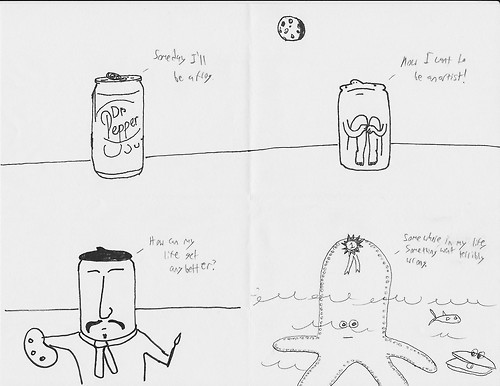 Someday I'll
be a frog.
Dr
Pepper
Now I want to
be an artist!
How can my
life get
any better?
Somewhere in my life
something went terribly
wrong.
1